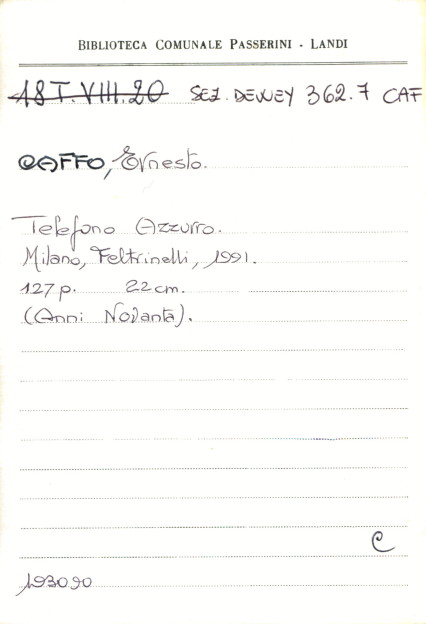 BIBLIOTECA COMUNALE PASSERINI - LANDI
18 T.VIII.20 SEZ. DEWEY 362.7 CAF
CAFFO, Ernesto.
Telefono Azzurro.
Milano, Feltrinelli, 1991.
127 p. 22 cm.
(Anni Novanta).
C
193090